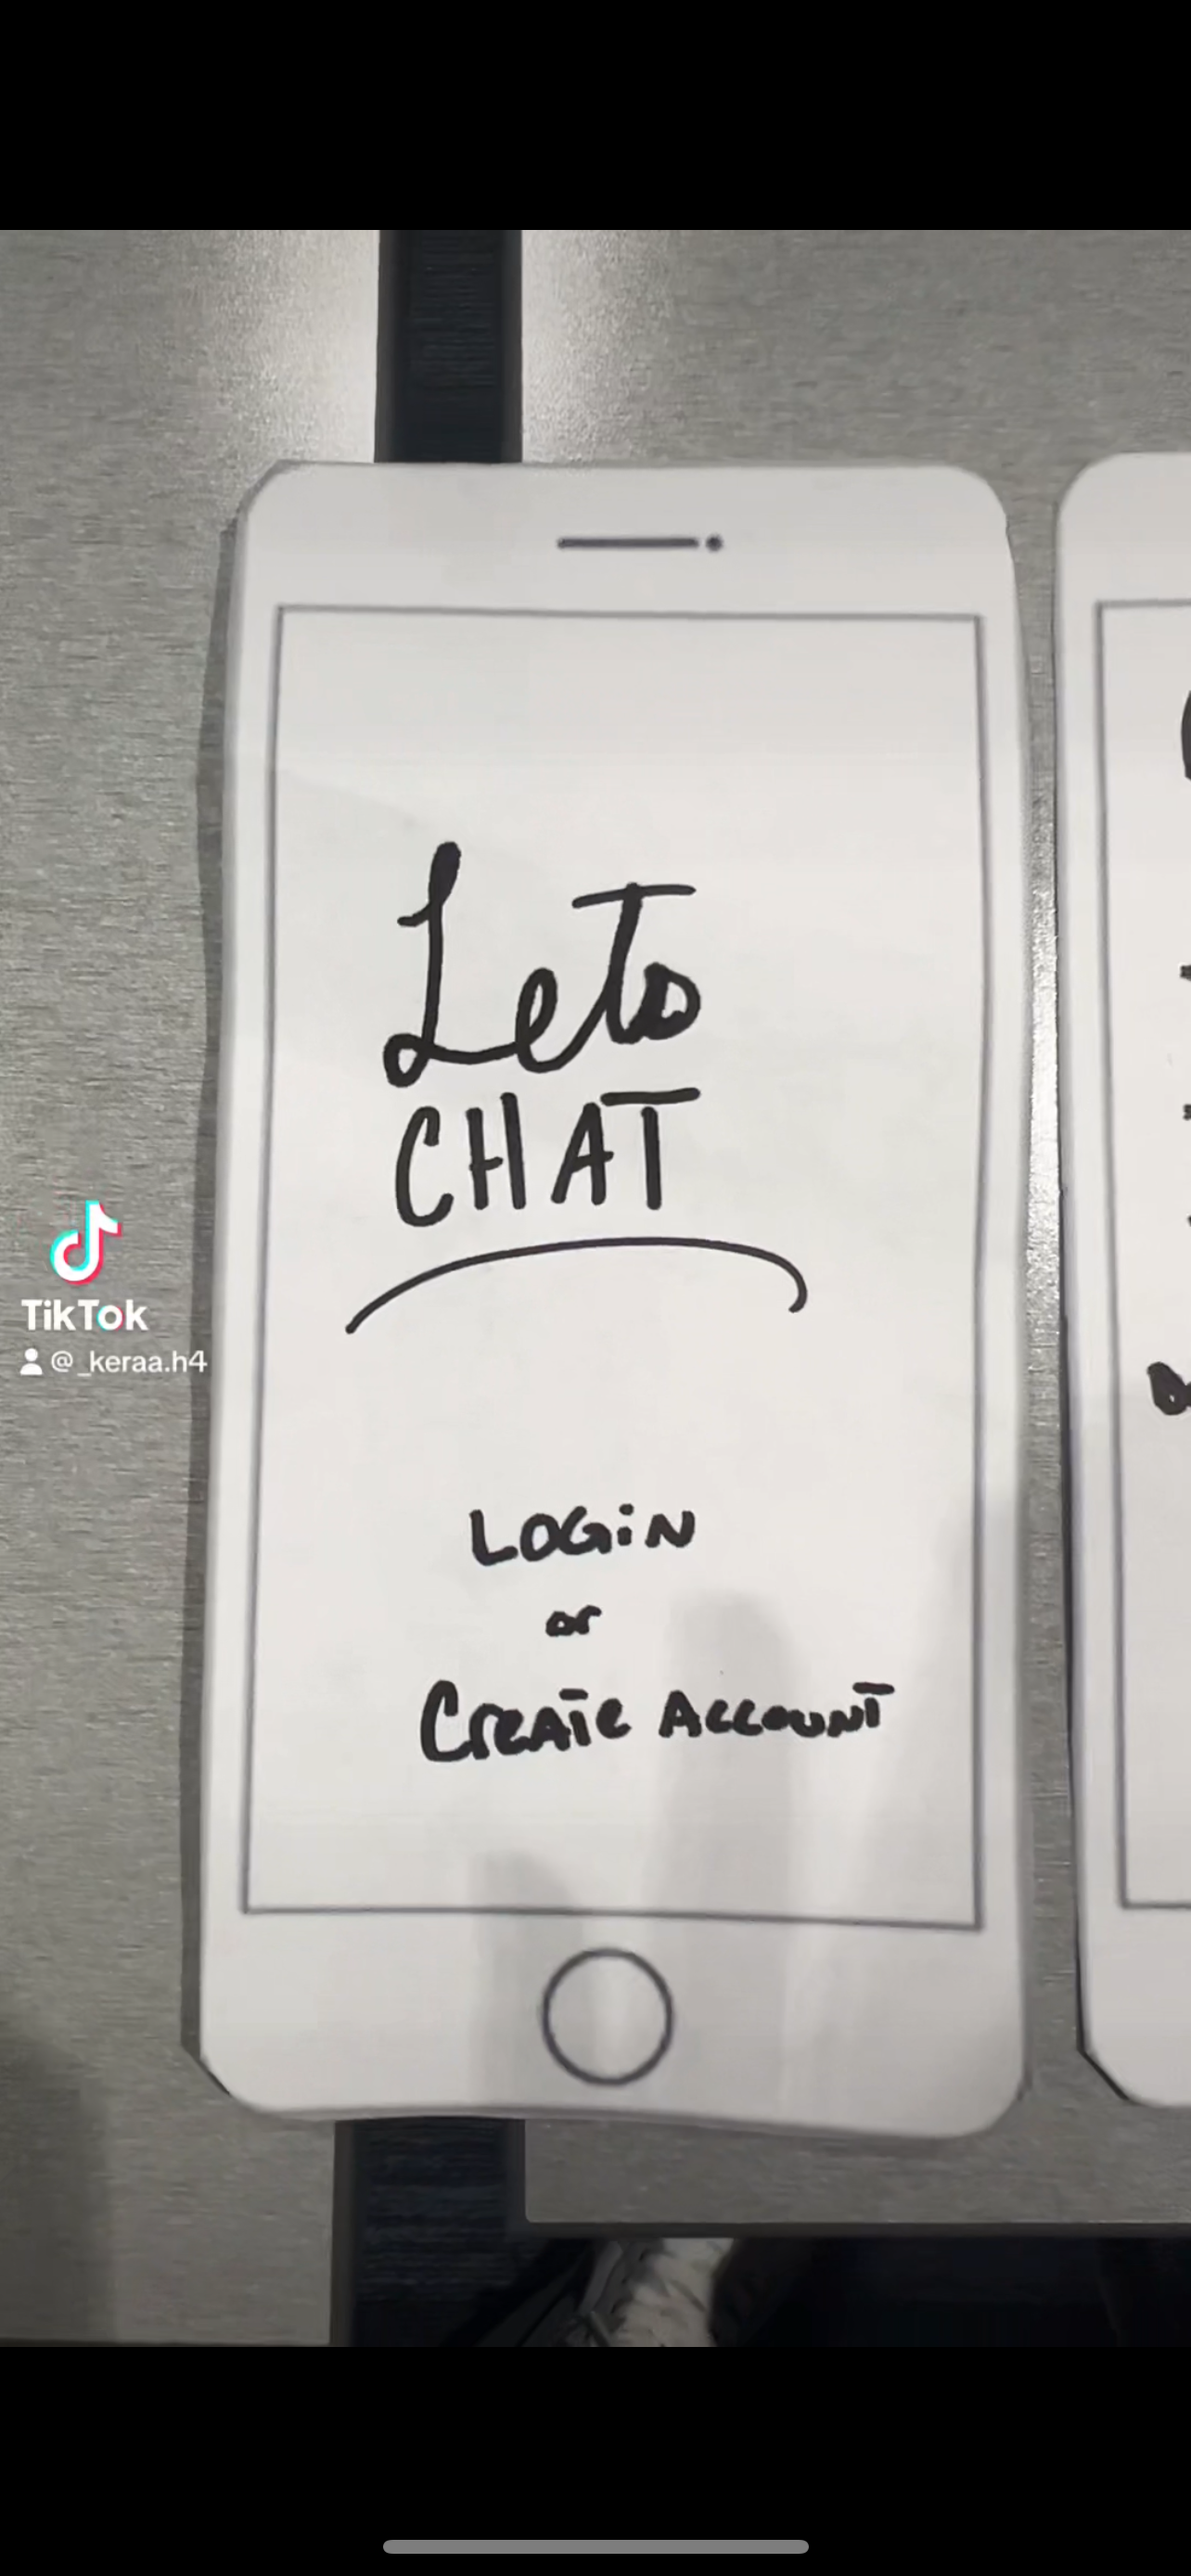 Lets
CHAT
LOGiN
or
CreATe ACCOUNT
TikTok
@_keraa.h4